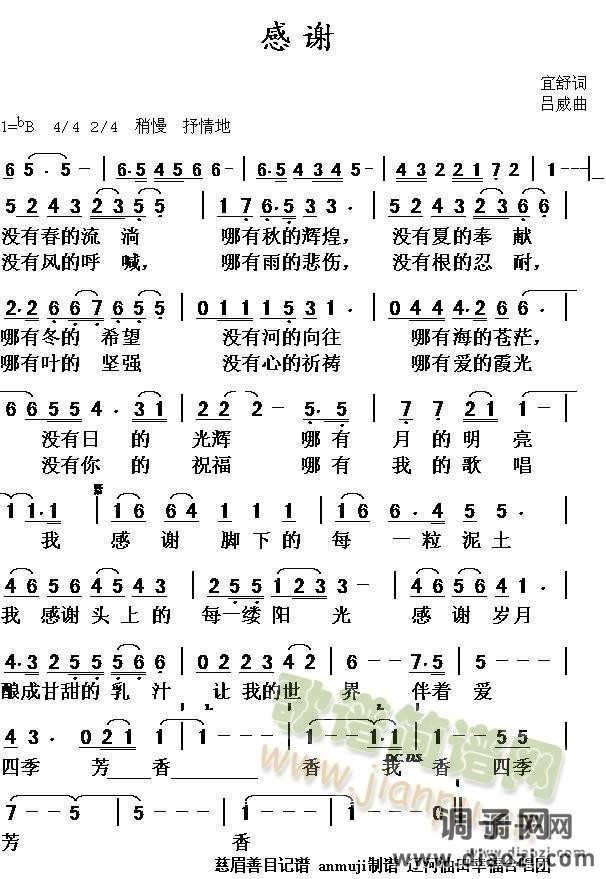 感谢
宜舒词
吕威曲
1=bB 4/4 2/4 稍慢 抒情地
6 5 · 5 - | 6·5 4 5 6 6 - | 6·5 3 4 5 5 - | 4 3 2 2 1 7 2 | 1 - - -
5 2 4 3 2 3 5 5 | 1 7 6·5 3 3 · | 5 2 4 3 2 3 6 6 |
没有春的流淌 哪有秋的辉煌， 没有夏的奉献
没有风的呼喊， 哪有雨的悲伤， 没有根的忍耐，
2·2 6 6 7 6 5 5 | 0 1 1 1 5 3 1 · | 0 4 4 4·2 6 6 · |
哪有冬的希望 没有河的向往 哪有海的苍茫，
哪有叶的坚强 没有心的祈祷 哪有爱的霞光
6 6 5 5 4 · 3 1 | 2 2 2 - 5·5 | 7 7 2 1 1 - |
没有日的光辉 哪有月的明亮
没有你的祝福 哪有我的歌唱
1 1·1 | 1 6 6 4 1 1 1 | 1 6 6·4 5 5 |
我 感谢脚下的每一粒泥土
4 6 5 6 4 5 | 2 5 5 1 2 3 3 - | 4 6 5 6 4 1 · |
我感谢头上的每一缕阳光 感谢岁月
4·3 2 5 5 5 6 6 | 0 2 2 2 3 4 2 | 6 - - 7·5 | 5 - - - |
酿成甘甜的乳汁 让我的世界 伴着爱
4 3 · 0 2 1 | 1 - - - | 1 - - 1·1 | 1 - - 5 5 |
四季 芳香 香 我香 四季
D.C. D.S.
7 - - 5 | 1 - - - | 1 - - 0 ‖
芳 香
慈眉善目记谱 anmuji制谱 辽河油田幸福合唱团
歌谱简谱网
调子网
www.diaozi.com